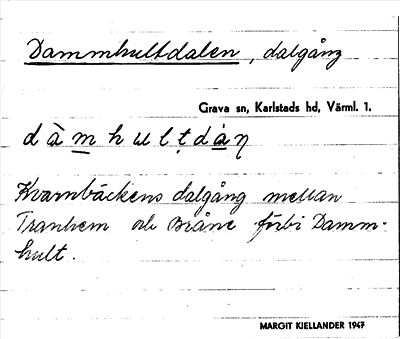 Dammhultdalen, dalgång
Grava sn, Karlstads hd, Värml. 1.
dàm̲hulṭdȧ̲ŋ
Kvarnbäckens dalgång mellan
Tranhem och Bråne förbi Damm-
hult.
MARGIT KJELLANDER 1947